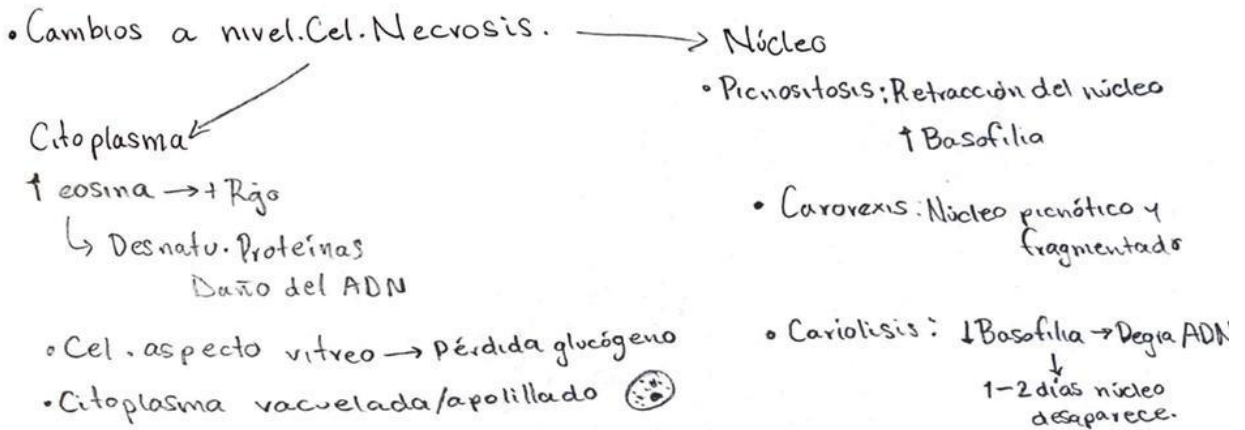 • Cambios a nivel.Cel.Necrosis. → Núcleo
Citoplasma
↑ eosina → + Rojo
↳ Desnatu. Proteínas
Daño del ADN
• Cel. aspecto vitreo → Pérdida glucógeno
• Citoplasma vacuelada/apolillado
• Picnositosis: Retracción del núcleo
↑ Basofilia
• Carorexis: Núcleo picnótico y
fragmentado
• Cariolisis: ↓ Basofilia → Degra ADN
↓
1-2 días núcleo
desaparece.